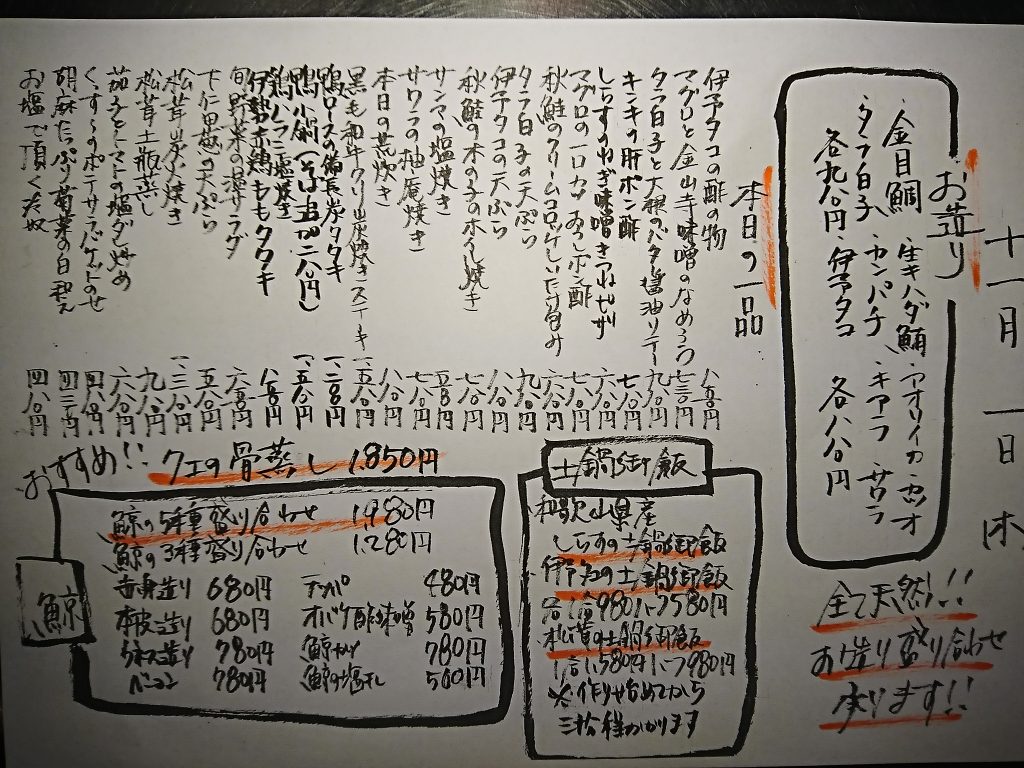 十一月一日木
お造り
・金目鯛 ・生キハダ鮪 ・アオリイカ ・カツオ
・タラ白子 ・カンパチ ・キアラ ・サワラ
各九八〇円 ・伊予タコ 各八八〇円
全て天然!!
お造り盛り合わせ
承ります!!
本日の一品
伊予タコの酢の物 八五〇円
マグロと金山寺味噌のなめろう 七三〇円
タラ白子と大根のバター醤油ソテー 九八〇円
キンキの肝ポン酢 七八〇円
しらすのねぎ味噌きつねピザ 六八〇円
マグロの一口カツ おろしポン酢 七八〇円
秋鮭のクリームコロッケしいたけ包み 七八〇円
タラ白子の天ぷら 九八〇円
伊予タコの天ぷら 八八〇円
秋鮭の木の子のホイル焼き 七八〇円
サンマの塩焼き 五八〇円
サワラの柚庵焼き 七八〇円
本日の荒炊き 八八〇円
黒毛和牛クリ炭焼きステーキ 一、五八〇円
鴨ロースの備長炭タタキ 一、二八〇円
鴨小鍋(そば玉が二八〇円) 一、五八〇円
伊勢赤鶏ももタタキ 八八〇円
旬野菜の温サラダ 六八〇円
下仁田葱の天ぷら 五八〇円
松茸炭火焼き 一、三八〇円
松茸土瓶蒸し 九八〇円
茄子とトマトの塩ダレ炒め 六八〇円
くんすのポテサラバゲットのせ 四八〇円
胡麻たっぷり菊菜の白和え 四三〇円
お塩で頂く冷奴 四八〇円
おすすめ!! クエの骨蒸し 1.850円
鯨
鯨の5種盛り合わせ 1,980円
鯨の3種盛り合わせ 1.280円
赤身造り 680円 テッパ 480円
本皮造り 680円 オバケ酢味噌 580円
うネス造り 780円 鯨カツ 780円
ベーコン 780円 鯨の塩干し 580円
土鍋御飯
和歌山県産
しらすの土鍋御飯
伊予タコの土鍋御飯
各一合980二合1,580円
松茸の土鍋御飯
1合1,580円二合1,980円
※作り始めてから
三拾分程かかります